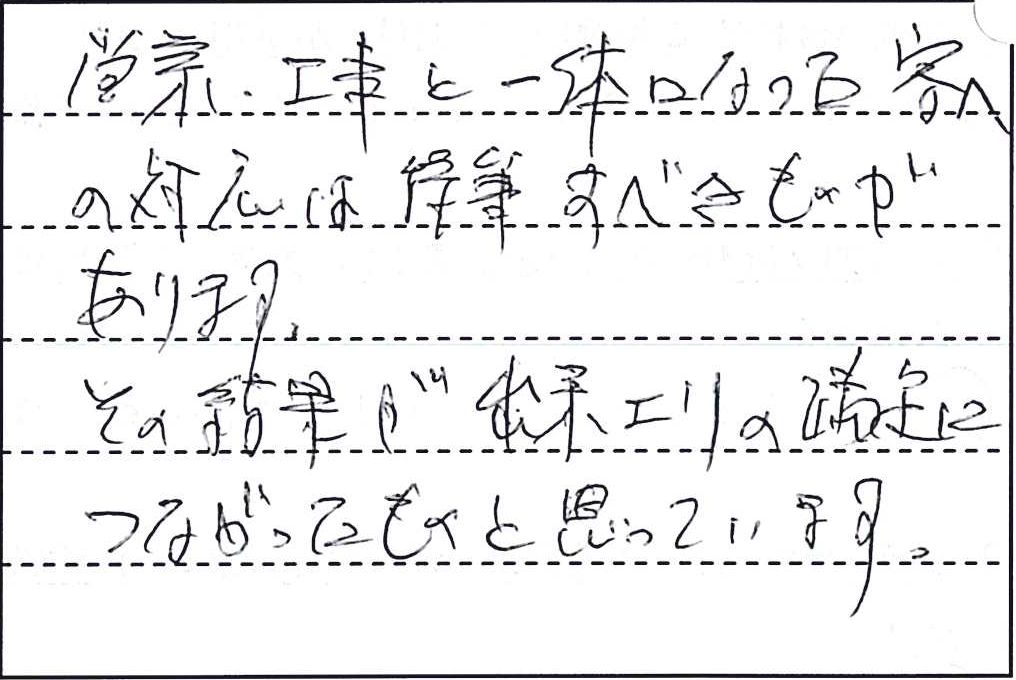 営業、工事と一体になった客へ
の対応は特筆すべきものが
あります。
その結果が出来上りの満足に
つながったものと思っています。